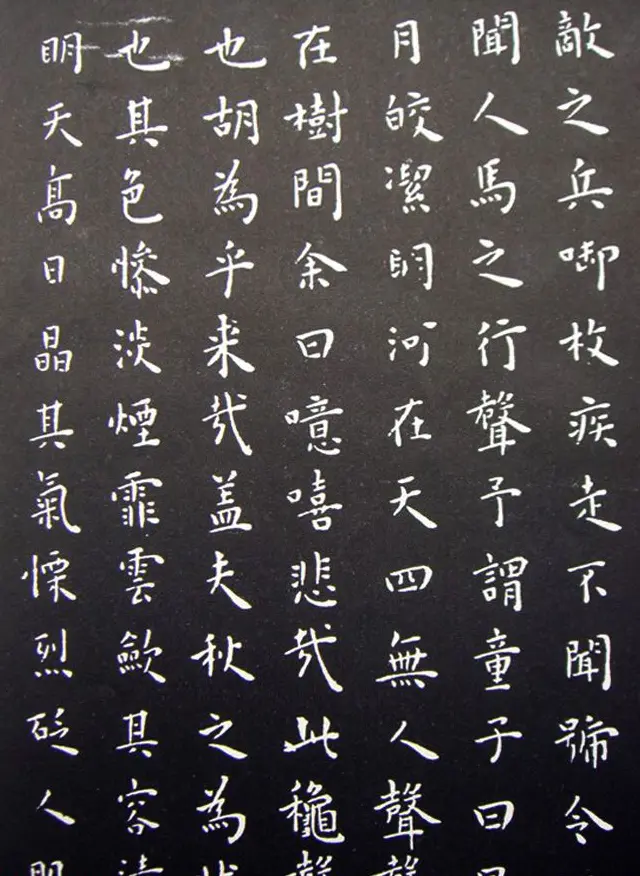 敵之兵啣枚疾走不聞號令
聞人馬之行聲予謂童子曰
月皎潔明河在天四無人聲
在樹間余曰噫嘻悲哉此穐
也胡為乎来哉盖夫秋之為
也其色惨淡煙霏雲歛其容
明天高日晶其氣慄烈砭人